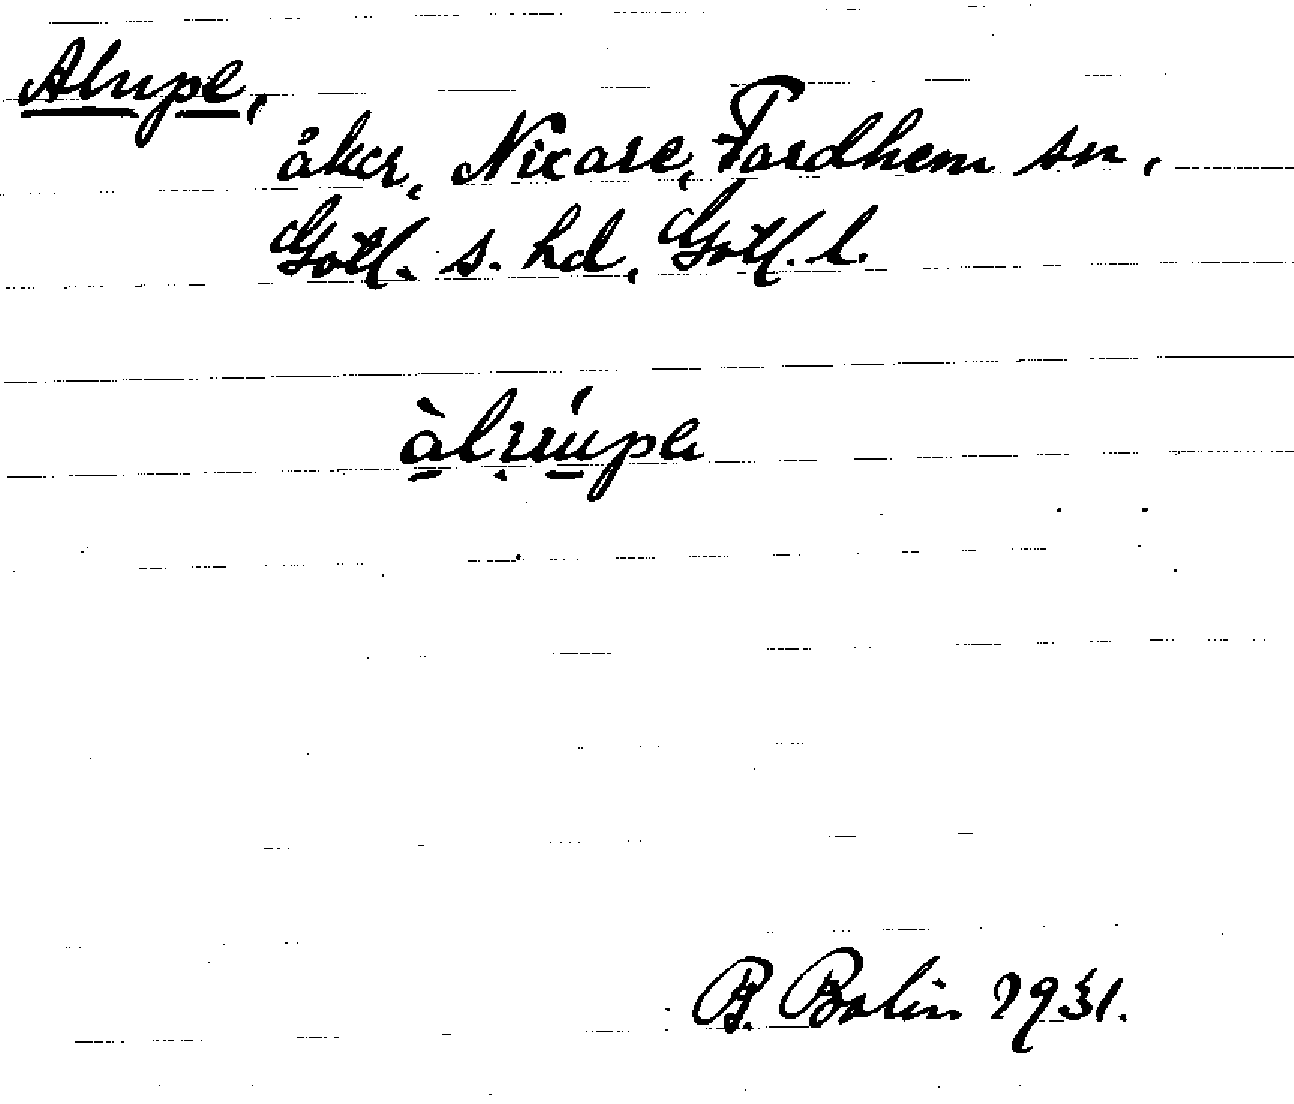 Alrupe,
åker, Nicare, Fardhem sn,
Gotl. s. hd, Gotl. l.
B. Bolin 1931.